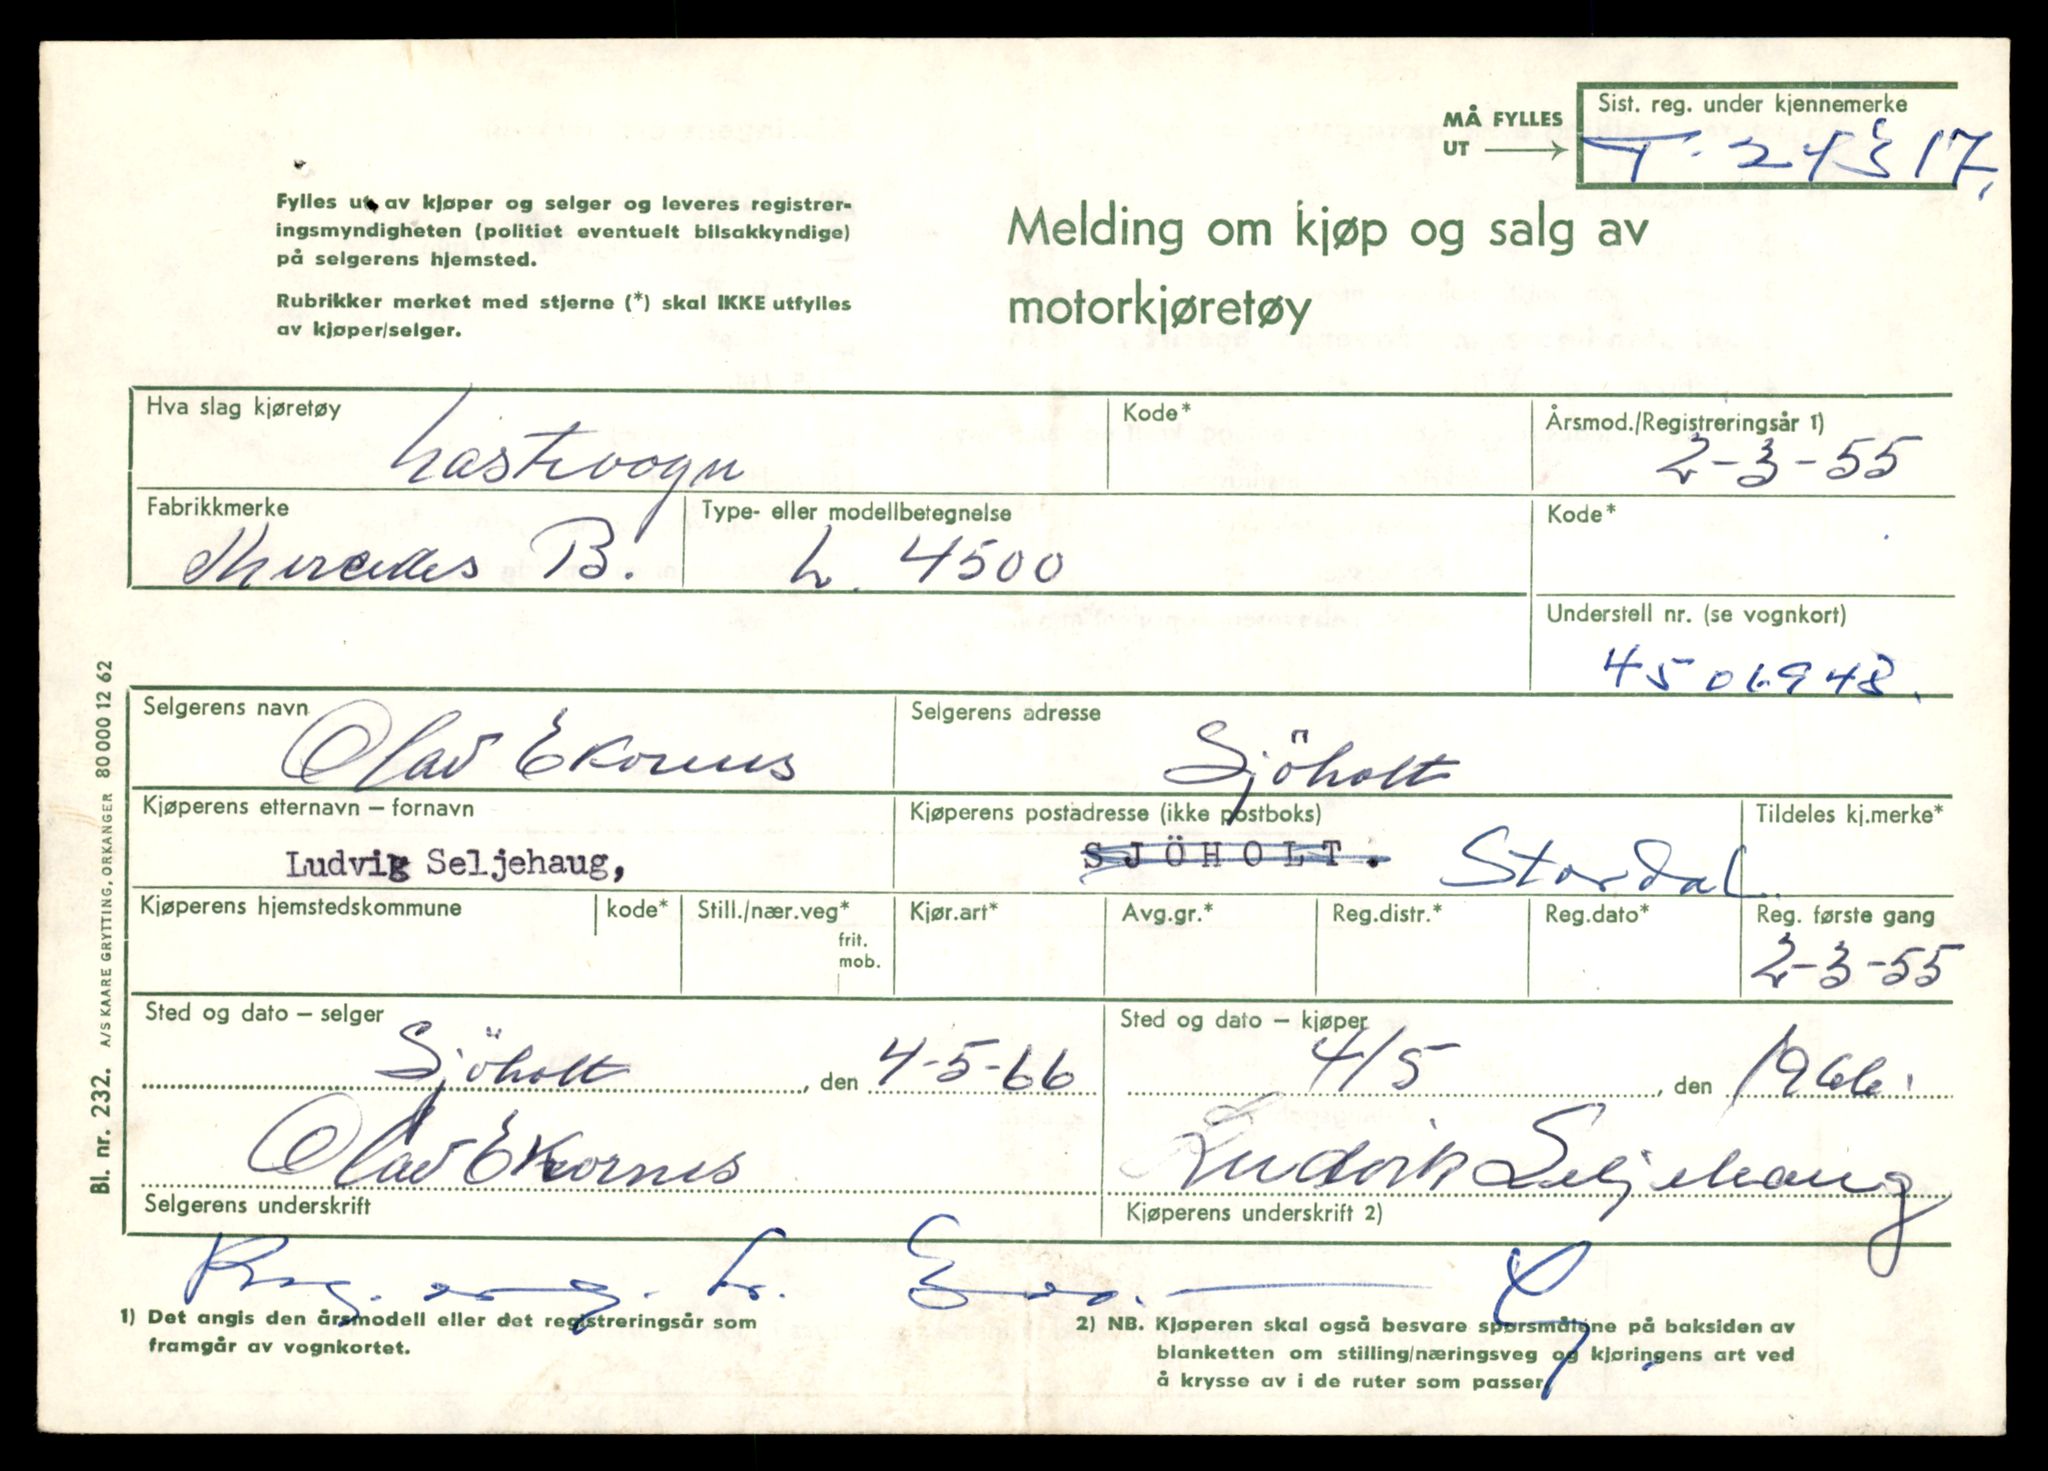 MÅ FYLLES
UT
Sist. reg. under kjennemerke
Fylles ut av kjøper og selger og leveres registrer-
ingsmyndigheten (politiet eventuelt bilsakkyndige)
på selgerens hjemsted.
Rubrikker merket med stjerne (*) skal IKKE utfylles
av kjøper/selger.
Melding om kjøp og salg av
motorkjøretøy
Hva slag kjøretøy
Lastevogn
Kode*
Årsmod./Registreringsår 1)
2-3-55
Fabrikkmerke
Mercedes B.
Type- eller modellbetegnelse
L. 4500
Kode*
Understell nr. (se vognkort)
4501948.
Selgerens navn
Olav Ekornes
Selgerens adresse
Sjöholt
Kjøperens etternavn – fornavn
Ludvig Seljehaug,
Kjøperens postadresse (ikke postboks)
SJÖHOLT. Stordal.
Tildeles kj.merke*
Kjøperens hjemstedskommune
kode*
Still./nær.veg*
frit.
mob.
Kjør.art*
Avg.gr.*
Reg.distr.*
Reg.dato*
Reg. første gang
2-3-55
Sted og dato – selger
Sjöholt, den 4-5-66
Sted og dato – kjøper
4/5, den 1966.
Olav Ekornes
Selgerens underskrift
Ludvik Seljehaug
Kjøperens underskrift 2)
1) Det angis den årsmodell eller det registreringsår som
framgår av vognkortet.
2) NB. Kjøperen skal også besvare spørsmålene på baksiden av
blanketten om stilling/næringsveg og kjøringens art ved
å krysse av i de ruter som passer.
Bl. nr. 232. A/S KAARE GRYTTING, ORKANGER 80 000 12 62